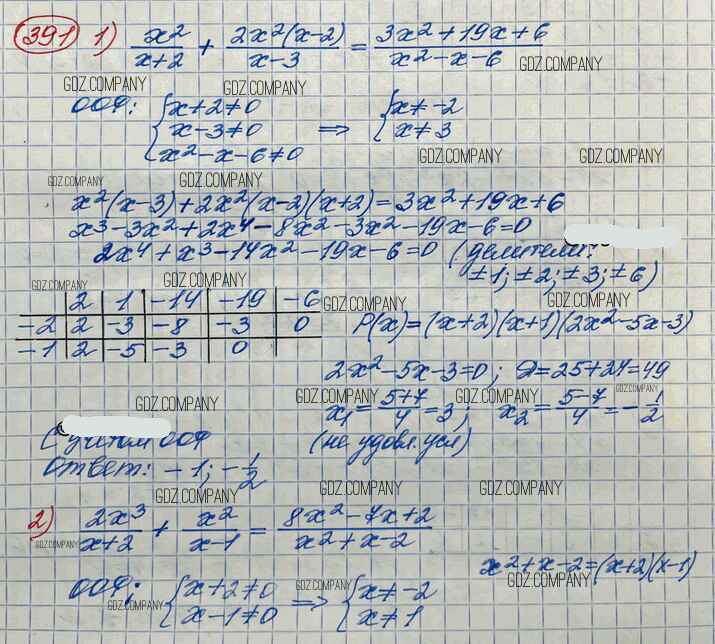 391 1) x²/(x+2) + 2x²(x-2)/(x-3) = (3x²+19x+6)/(x²-x-6)
GDZ.COMPANY
GDZ.COMPANY GDZ.COMPANY
ООФ: { x+2≠0 ⇒ { x≠-2
x-3≠0 x≠3
x²-x-6≠0
GDZ.COMPANY GDZ.COMPANY
GDZ.COMPANY GDZ.COMPANY
x²(x-3)+2x²(x-2)(x+2)=3x²+19x+6
x³-3x²+2x⁴-8x²-3x²-19x-6=0
2x⁴+x³-14x²-19x-6=0 (делители:
±1; ±2; ±3; ±6)
GDZ.COMPANY GDZ.COMPANY
GDZ.COMPANY GDZ.COMPANY
2 1 -14 -19 -6
-2 2 -3 -8 -3 0
-1 2 -5 -3 0
P(x)=(x+2)(x+1)(2x²-5x-3)
2x²-5x-3=0; D=25+24=49
GDZ.COMPANY GDZ.COMPANY GDZ.COMPANY GDZ.COMPANY
x₁=(5+7)/4=3; x₂=(5-7)/4=-1/2
(не удовл. усл)
С учётом ООФ
Ответ: -1; -1/2
GDZ.COMPANY GDZ.COMPANY GDZ.COMPANY
2) 2x³/(x+2) + x²/(x-1) = (8x²-7x+2)/(x²+x-2)
GDZ.COMPANY
x²+x-2=(x+2)(x-1)
GDZ.COMPANY
ООФ: { x+2≠0 ⇒ { x≠-2
x-1≠0 x≠1
GDZ.COMPANY GDZ.COMPANY